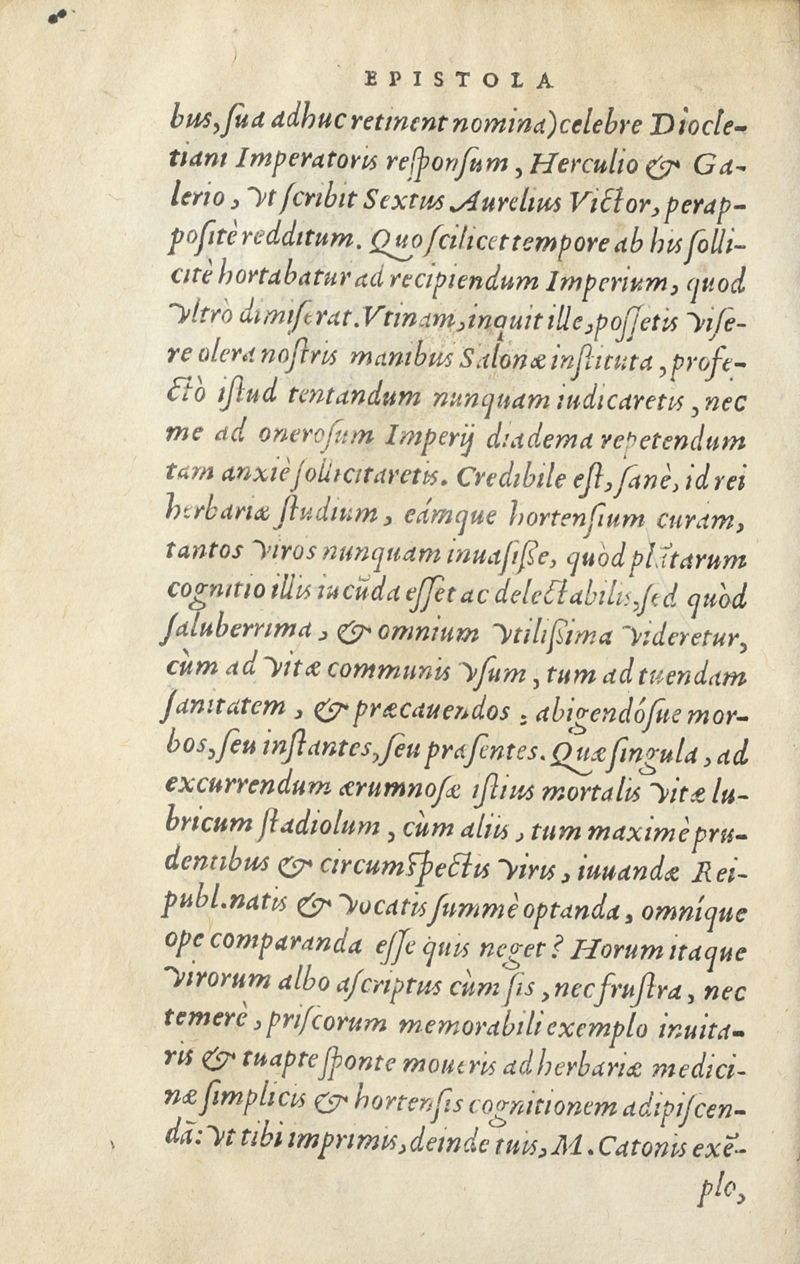 EPISTOLA
bus, sua adhuc retinent nomina) celebre Diocle-
tiani Imperatoris responsum, Herculio & Ga-
lerio, vt scribit Sextus Aurelius Victor, perap-
positè redditum. Quo scilicet tempore ab his solli-
citè hortabatur ad recipiendum Imperium, quod
vltrò dimiserat. Vtinam, inquit ille, possetis vise-
re olera nostris manibus Salonæ instituta, profe-
ctò istud tentandum nunquam iudicaretis, nec
me ad onerosum Imperij diadema repetendum
tam anxiè sollicitaretis. Credibile est, sanè, id rei
herbariæ studium, eámque hortensium curam,
tantos viros nunquam inuasisse, quòd plātarum
cognitio illis iucūda esset ac delectabilis, sed quòd
saluberrima, & omnium vtilissima videretur,
cùm ad vitæ communis vsum, tum ad tuendam
sanitatem, & præcauendos, abigendósue mor-
bos, seu instantes, seu præsentes. Quæ singula, ad
excurrendum ærumnosæ istius mortalis vitæ lu-
bricum stadiolum, cùm aliis, tum maximè pru-
dentibus & circumspectis viris, iuuandæ Rei-
publ. natis & vocatis summè optanda, omníque
ope comparanda esse quis neget? Horum itaque
virorum albo ascriptus cùm sis, nec frustra, nec
temerè, priscorum memorabili exemplo inuita-
ris & tuapte sponte moueris ad herbariæ medici-
næ simplicis & hortensis cognitionem adipiscen-
dā: vt tibi imprimis, deinde tuis, M. Catonis exē-
plo,